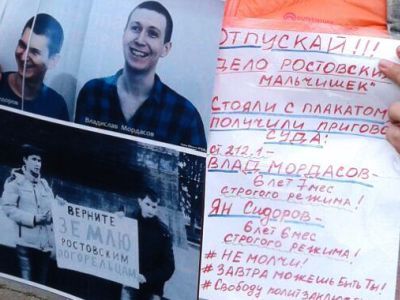 Владислав Мордасов
ВЕРНИТЕ
ЗЕМЛЮ
РОСТОВСКИМ
ПОГОРЕЛЬЦАМ
ОТПУСКАЙ!!!
"ДЕЛО РОСТОВСКИХ
МАЛЬЧИШЕК"
СТОЯЛИ С ПЛАКАТОМ
ПОЛУЧИЛИ ПРИГОВО
СУДА:
СТ. 212.1 -
ВЛАД МОРДАСОВ -
6 ЛЕТ 7 МЕС
СТРОГОГО РЕЖИМА!
ЯН СИДОРОВ -
6 ЛЕТ 6 МЕС
СТРОГОГО РЕЖИМА!
# НЕ МОЛЧИ!
# ЗАВТРА МОЖЕШЬ БЫТЬ ТЫ!
# СВОБОДУ ПОЛИТЗАКЛЮЧ